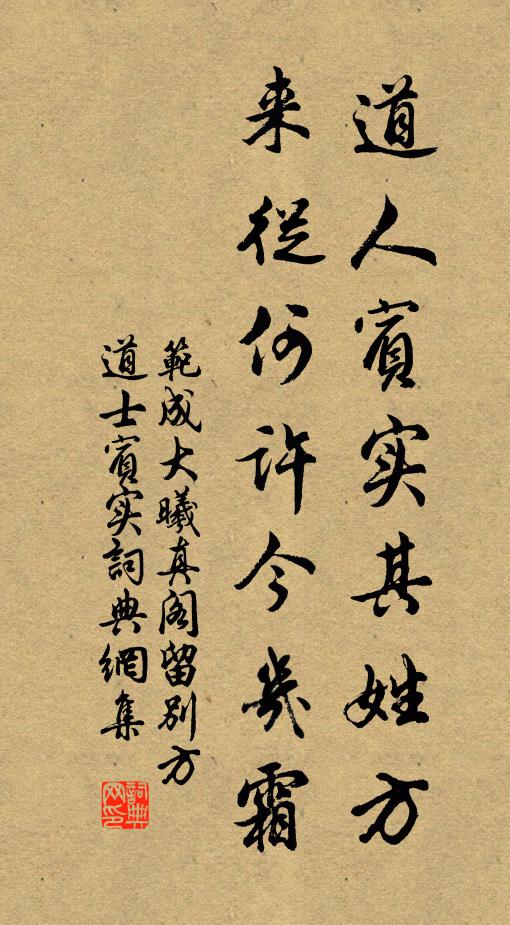 道人賓实其姓方
来從何許今幾霜
範成大曦真阁留别方
道士賓实詞典網集
詞典网印